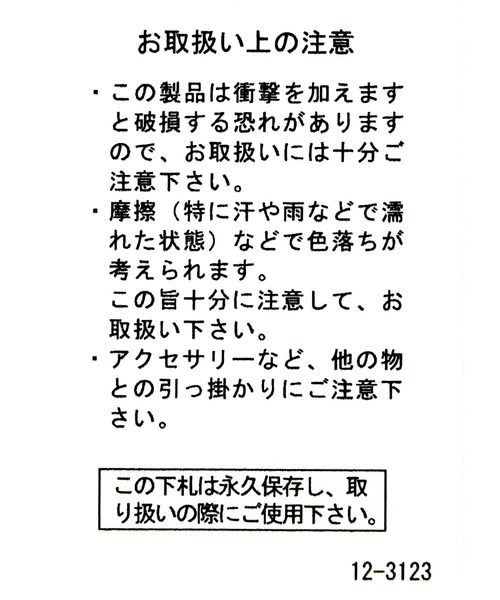 お取扱い上の注意
・この製品は衝撃を加えます
と破損する恐れがあります
ので、お取扱いには十分ご
注意下さい。
・摩擦（特に汗や雨などで濡
れた状態）などで色落ちが
考えられます。
この旨十分に注意して、お
取扱い下さい。
・アクセサリーなど、他の物
との引っ掛かりにご注意下
さい。
この下札は永久保存し、取
り扱いの際にご使用下さい。
12-3123